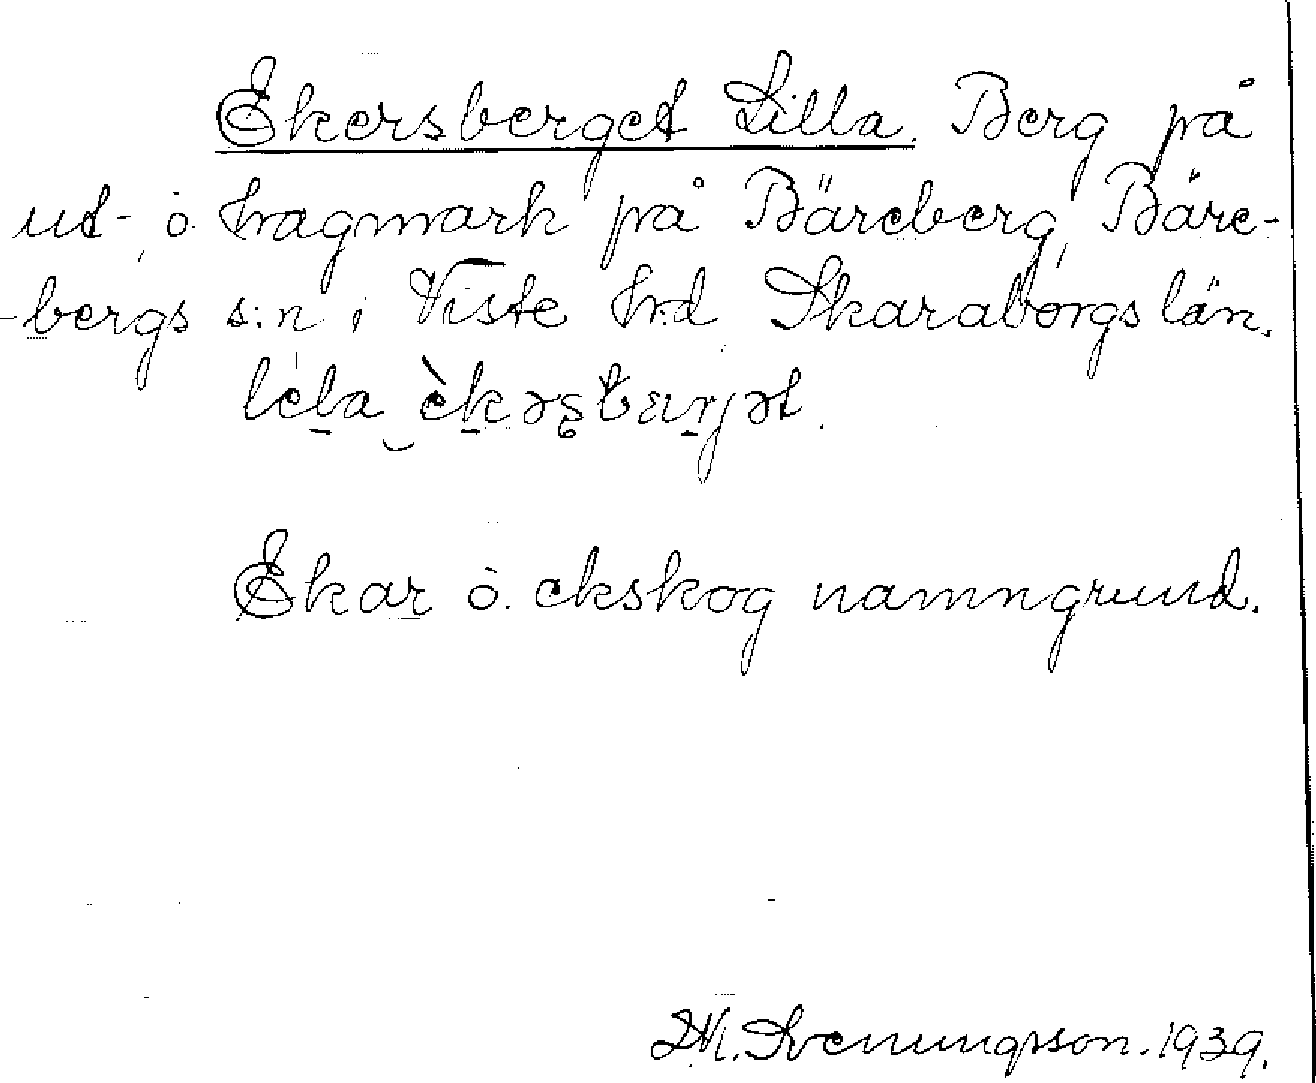 Ekersberget Lilla. Berg på
ut- o. hagmark på Bäreberg, Bäre-
-bergs s:n i Viste hrd Skaraborgs län.
Ekar o. ekskog namngrund.
M. Svenungsson. 1939.